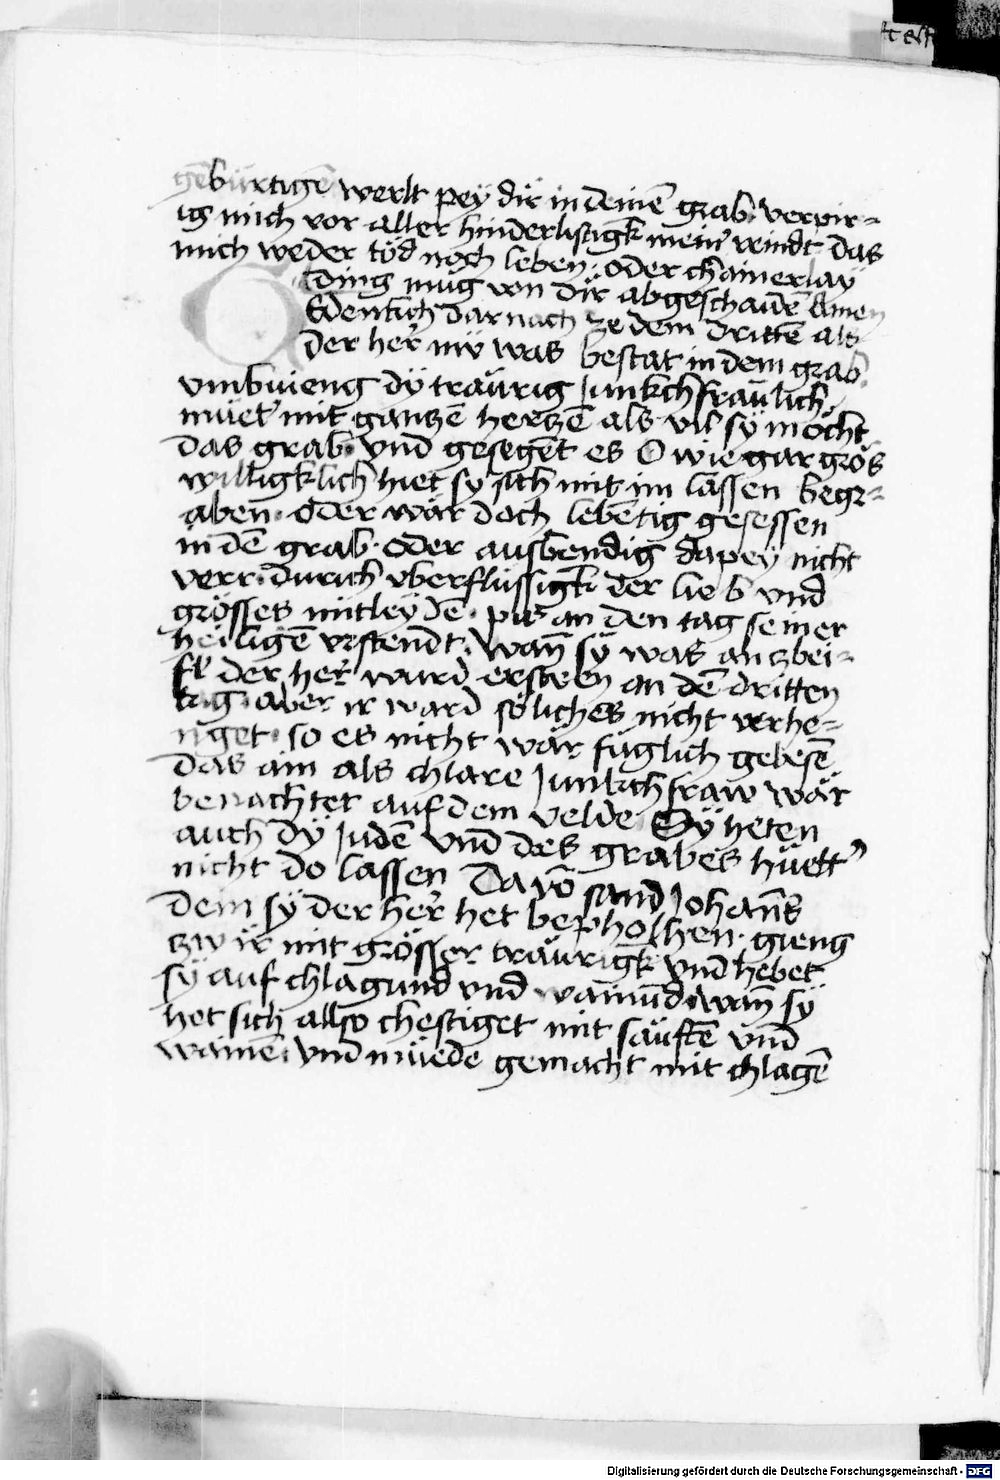 gebürtigē werlt peÿ dir in deinē grab· verpir=
ig mich vor aller hinderlistigk mein' veindt das
mich weder töd noch leben· oder chainerlaÿ
ding mug von dir abgeschaidē Amen
Gedenkch darnach ze dem dritten als
der her nu was bestat in dem grab·
vmbvieng dÿ traurig Junkchfraulich
müet' mit ganczē herczē als vil sÿ möcht
das grab· vnd gesegēt es O wie gar grös
williigklich hiet sÿ sich mit im lassen begr=
aben· oder wär doch lebētig gesessen
in dē grab· oder auswendig dapeÿ nicht
verr· durich vberflüssigk· der lieb vnd
grösses mitleÿdē· pis an den tag seiner
heiligē vrstendt· Wan̄ sÿ was an czwei=
fl' der her wurd ersten an dē dritten
tag· aber ir ward söliches nicht verhe=
nget· so es nicht wär füglich gebesē
das ain als chlare Junkchfraw wär
benachtet auf dem velde Sÿ heten
auch dÿ Judē vnd des grabes hüett'
nicht do lassen Davō sand Johan̄s
dem sÿ der her het bepholhen· gieng
czw ir mit grösser traurigk vnd hebet
sÿ auf chlagund vnd wainūd wan̄ sÿ
het sich allso chestiget mit säuftē vnd
wainē· vnd müede gemacht mit chlagē
Digitalisierung gefördert durch die Deutsche Forschungsgemeinschaft - DFG